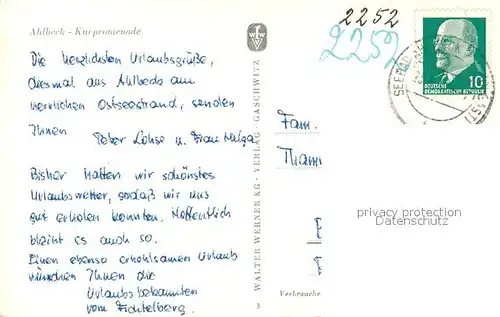 Ahlbeck - Kurpromenade
Die herzlichsten Urlaubsgrüße,
diesmal aus Ahlbeck am
herrlichen Ostseestrand, senden
Ihnen
Peter Lohse u. Frau Helga
Bisher hatten wir schönstes
Urlaubswetter, sodaß wir uns
gut erholen konnten. Hoffentlich
bleibt es auch so.
Einen ebenso erholsamen Urlaub
wünschen Ihnen die
Urlaubsbekannten
vom Fichtelberg.
WALTER WERNER KG - VERLAG - GASCHWITZ
3
2252
2252
SEEBAD
DEUTSCHE
DEMOKRATISCHE REPUBLIK
10
Fam.
Tham
privacy protection
Datenschutz
Verbrauche